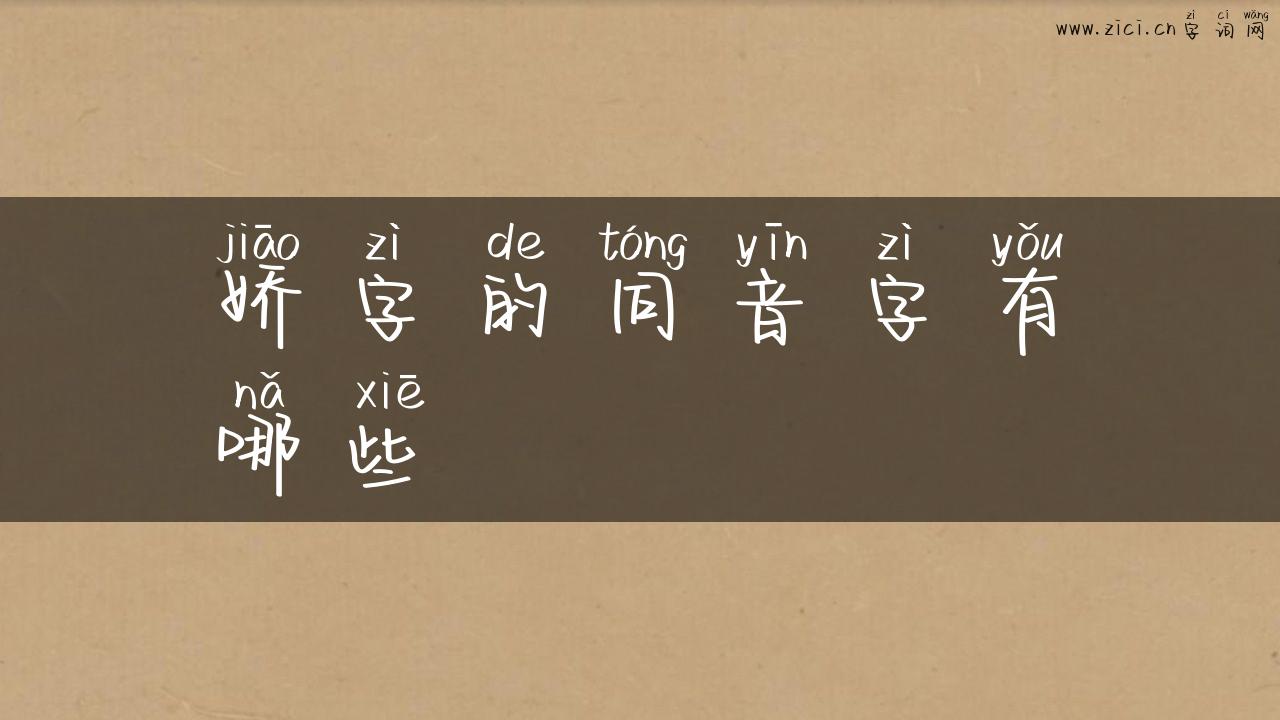 zì cí wǎng
www.zici.cn 字 词 网
jiāo zì de tóng yīn zì yǒu
娇 字 的 同 音 字 有
nǎ xiē
哪 些